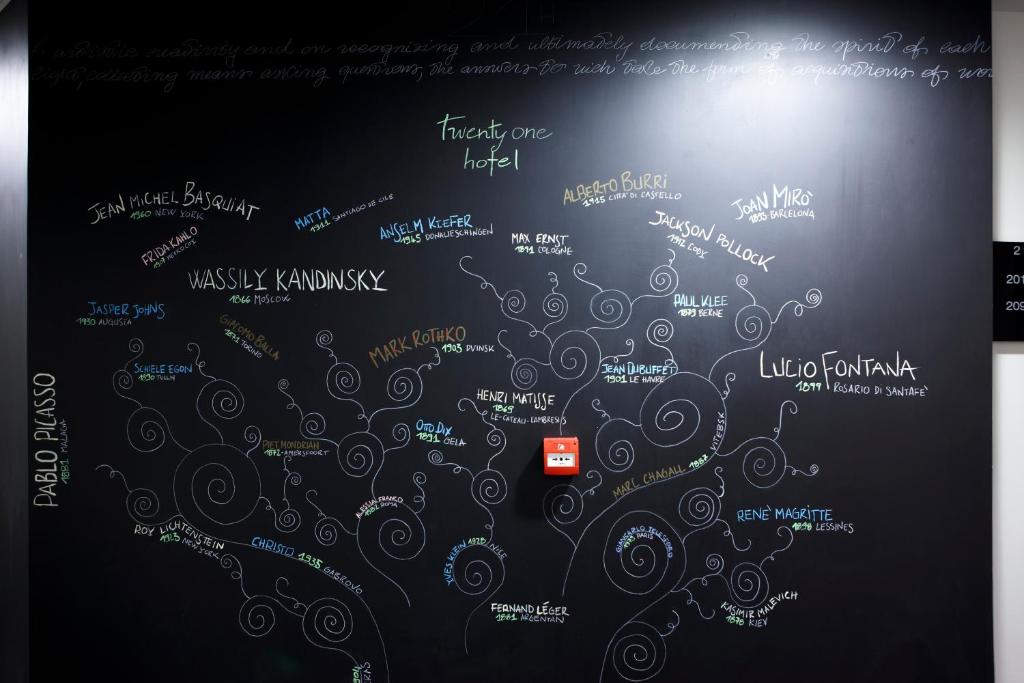 and on recognizing and ultimately documenting the spirit of each
means asking questions, the answers to wich take the form of acquisitions of
Twenty one
hotel
JEAN MICHEL BASQUIAT
1960 NEW YORK
FRIDA KAHLO
MATTA
1911 SANTIAGO DE CILE
ANSELM KIEFER
1945 DONAUESCHINGEN
ALBERTO BURRI
1915 CITTA' DI CASTELLO
MAX ERNST
1891 COLOGNE
JACKSON POLLOCK
1912 CODY
JOAN MIRÒ
1893 BARCELONA
WASSILY KANDINSKY
1866 MOSCOW
JASPER JOHNS
1930 AUGUSTA
GIACOMO BALLA
1871 TORINO
MARK ROTHKO
1903 DVINSK
PAUL KLEE
1879 BERNE
SCHIELE EGON
1890 TULLN
JEAN DUBUFFET
1901 LE HAVRE
LUCIO FONTANA
1899 ROSARIO DI SANTAFE'
PABLO PICASSO
1881 MALAGA
HENRI MATISSE
1869
LE-CATEAU-CAMBRESIS
OTTO DIX
1891 GELA
PIET MONDRIAN
1872-AMERSFOORT
MARC CHAGALL 1887 VITEBSK
1882 ROMA
ROY LICHTENSTEIN
1923 NEW YORK
CHRISTO 1935 GABROVO
YVES KLEIN 1928 NICE
GIANCARLO
PARIS
RENE' MAGRITTE
1898 LESSINES
FERNAND LÉGER
1881 ARGENTAN
KASIMIR MALEVICH
1878 KIEV
2
201
209